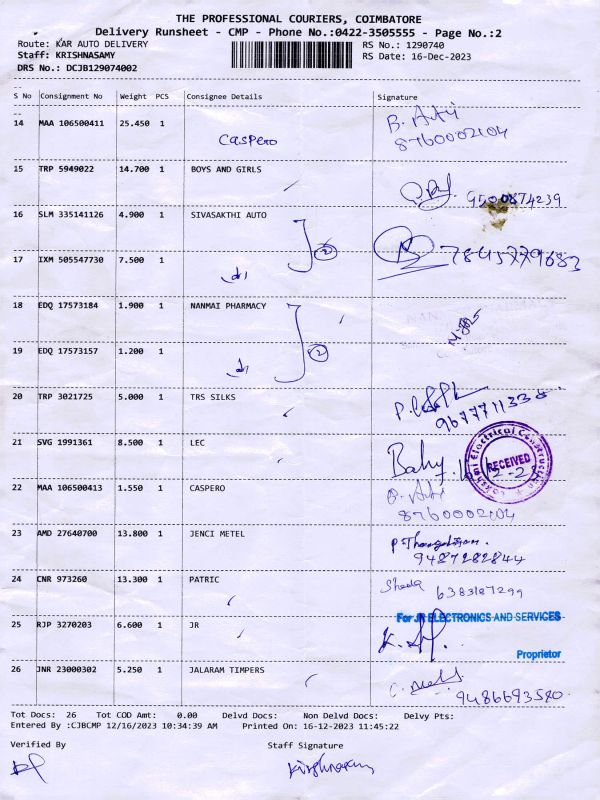 THE PROFESSIONAL COURIERS, COIMBATORE
Delivery Runsheet - CMP - Phone No.:0422-3505555 - Page No.:2
Route: KAR AUTO DELIVERY RS No.: 1290740
Staff: KRISHNASAMY RS Date: 16-Dec-2023
DRS No.: DCJB129074002
S No Consignment No Weight PCS Consignee Details Signature
14 MAA 106500411 25.450 1 Caspero B. Arti
8760002104
15 TRP 5949022 14.700 1 BOYS AND GIRLS
9500874239
16 SLM 335141126 4.900 1 SIVASAKTHI AUTO
2
17 IXM 505547730 7.500 1 7845779683
18 EDQ 17573184 1.900 1 NANMAI PHARMACY
19 EDQ 17573157 1.200 1 2
20 TRP 3021725 5.000 1 TRS SILKS
21 SVG 1991361 8.500 1 LEC
RECEIVED
22 MAA 106500413 1.550 1 CASPERO
8760002104
23 AMD 27640700 13.800 1 JENCI METEL
9487282844
24 CNR 973260 13.300 1 PATRIC
6383187299
25 RJP 3270203 6.600 1 JR For JR ELECTRONICS AND SERVICES
Proprietor
26 JNR 23000302 5.250 1 JALARAM TIMPERS
9486693580
Tot Docs: 26 Tot COD Amt: 0.00 Delvd Docs: Non Delvd Docs: Delvy Pts:
Entered By :CJBCMP 12/16/2023 10:34:39 AM Printed On: 16-12-2023 11:45:22
Verified By Staff Signature
Krishnasamy